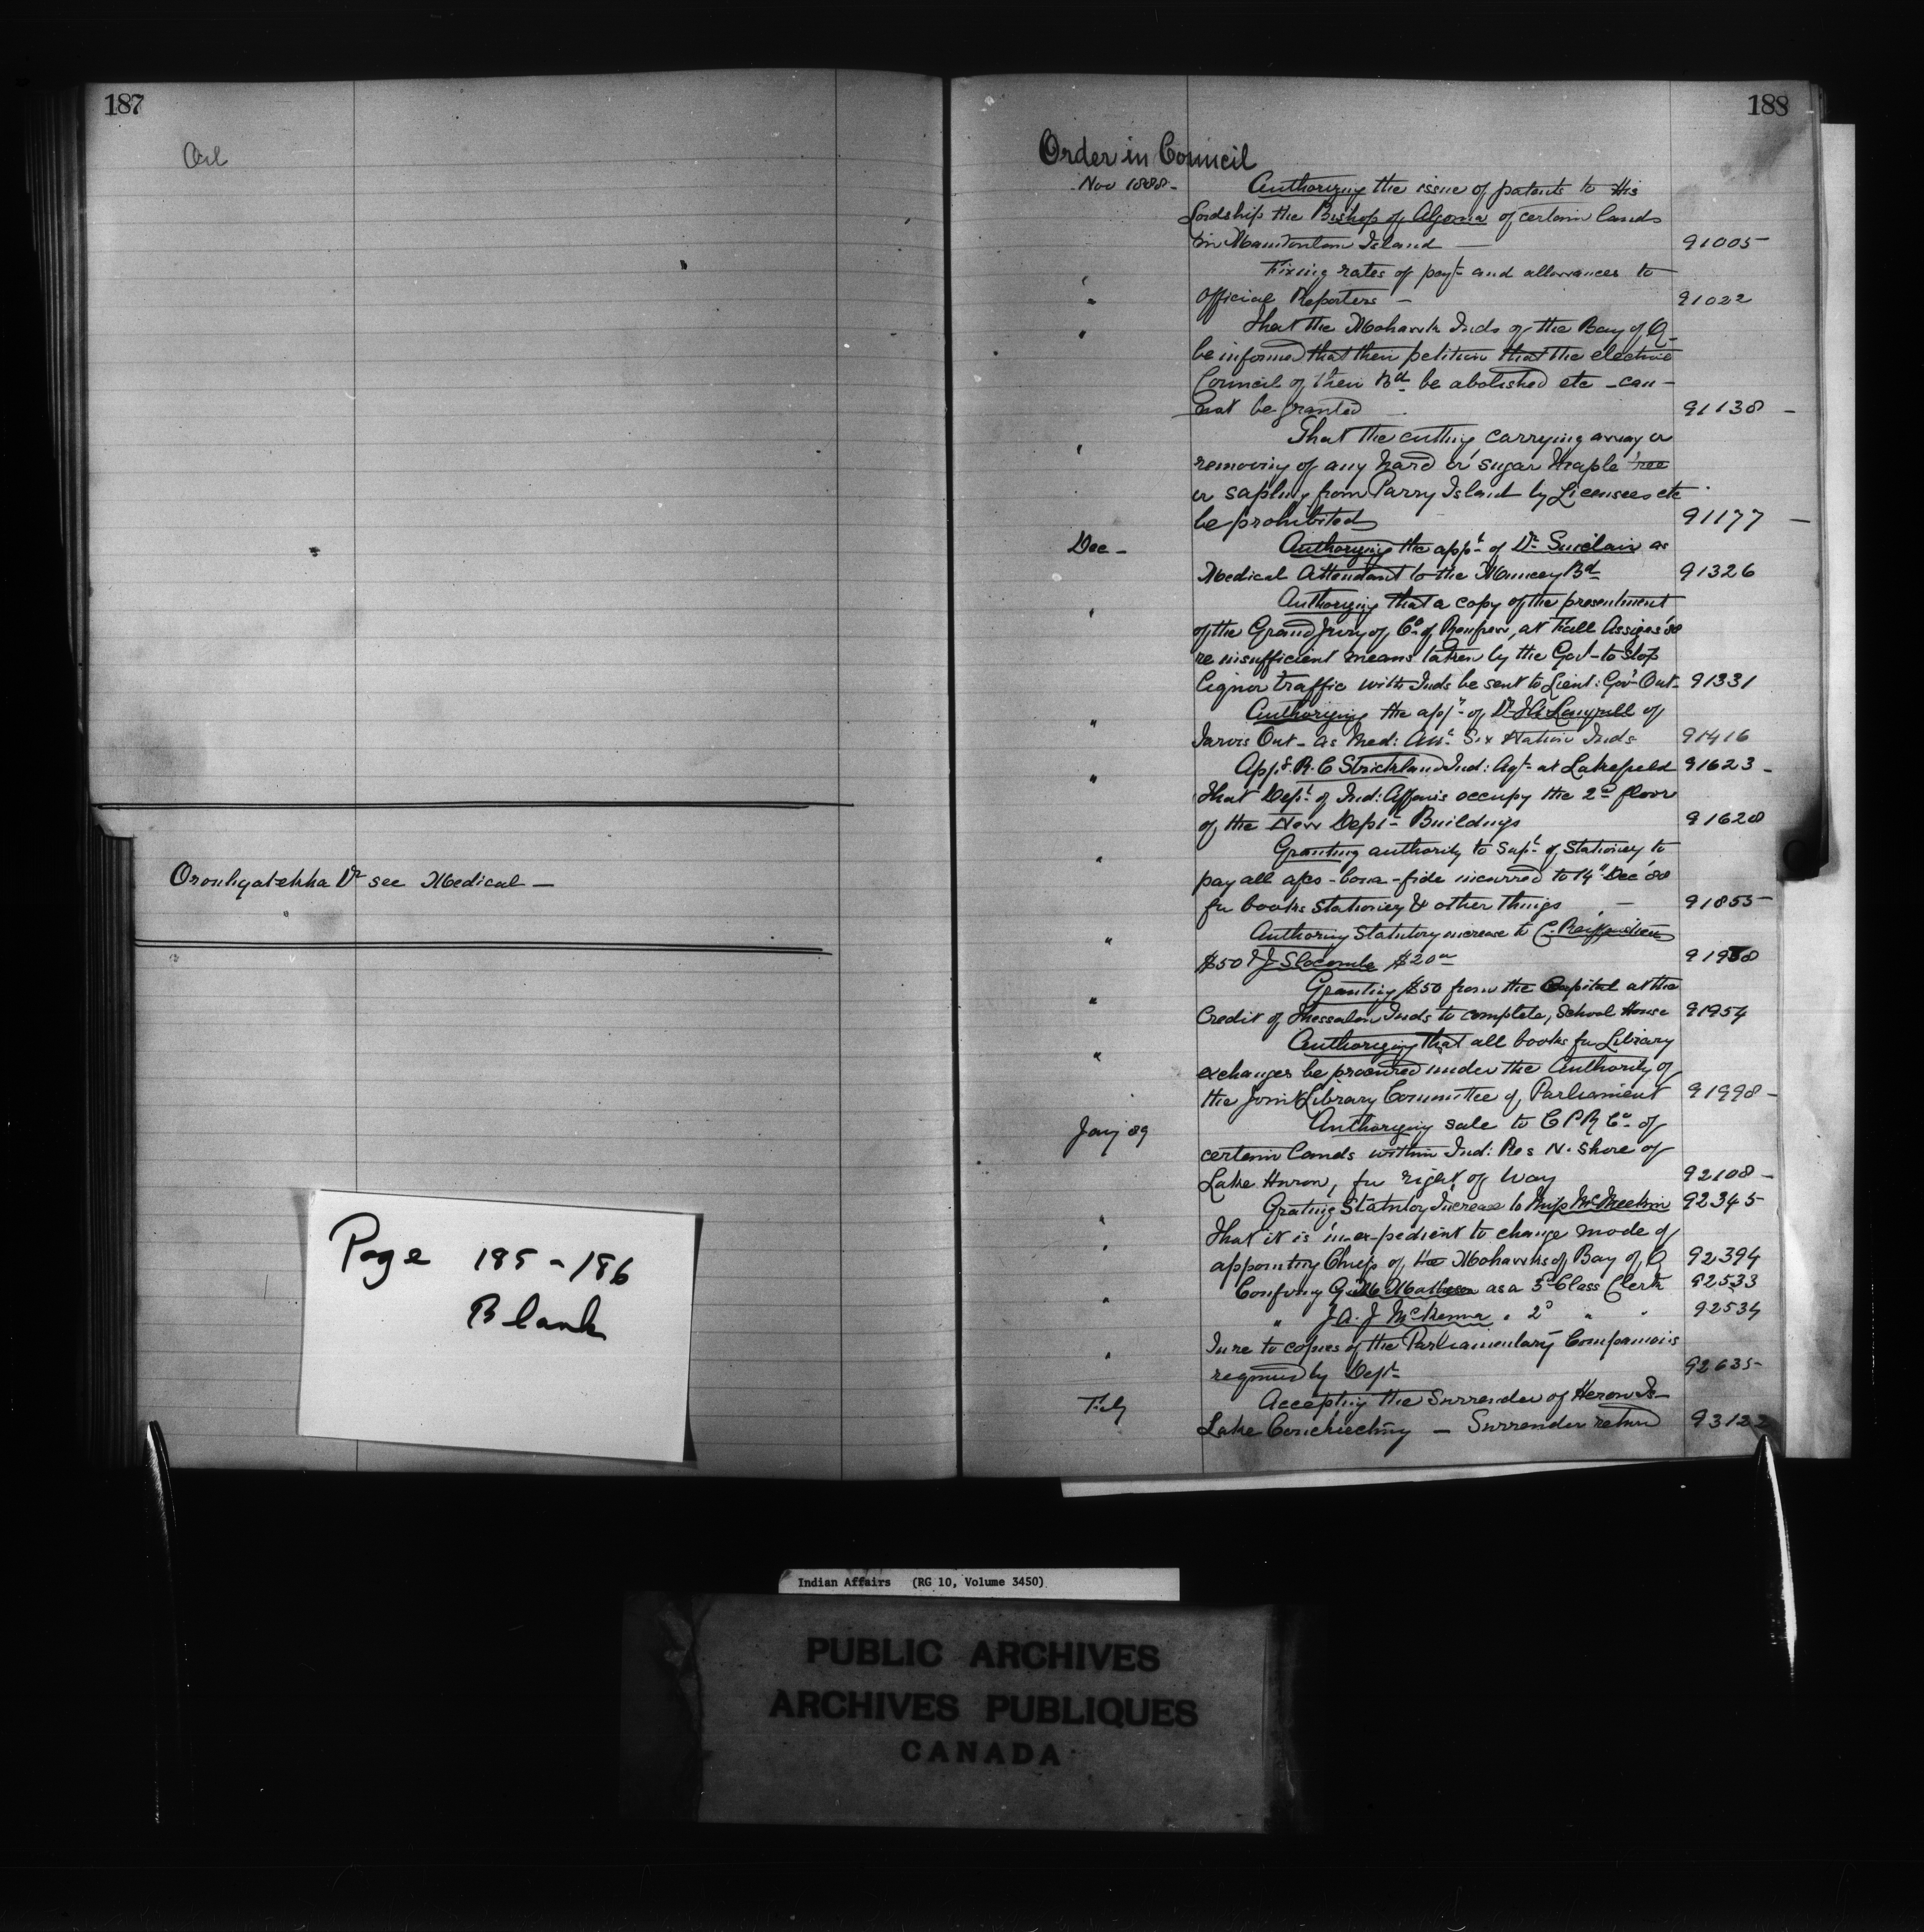 187
Oil
Oronhyatekha Dr see Medical —
Page 185-186
Blank
188
Order in Council
Nov 1888 - Authorizing the issue of patents to His
Lordship the Bishop of Algoma of certain lands
in Manitoulin Island — 91005
Fixing rates of payt and allowances to
" Official Reporters — 91022
" That the Mohawk Inds of the Bay of Q-
be informed that their petition that the elective
Council of their Bd be abolished etc - can-
not be granted 91138 -
" That the cutting carrying away or
removing of any hard or sugar Maple tree
or sapling from Parry Island by Licensees etc
be prohibited 91177 -
Dec - Authorizing the appt of Dr Sinclair as
Medical Attendant to the Muncey Bd 91326
" Authorizing that a copy of the presentment
of the Grand Jury of Co of Renfrew, at Fall Assizes '88
re insufficient means taken by the Govt to stop
liquor traffic with Inds be sent to Lieut: Govr Ont- 91331
" Authorizing the appt of Dr Langrill of
Jarvis Ont - as Med: Att Six Nation Inds 91416
" App. R. C Strickland Ind: Agt at Lakefield 91623 -
That Dept of Ind: Affairs occupy the 2d floor
of the New Deptl Buildings 91628
" Granting authority to Supt of Stationery to
pay all a/cs - bona-fide incurred to 14" Dec '88
for books Stationery & other things - 91855
" Authoring Statutory increase to C.
$50 & J Slocombe $20 91
" Granting $50 from the Capital at the
Credit of Thessalon Inds to complete, School House 91954
" Authorizing that all books for Library
exchanges be procured under the Authority of
the Joint Library Committee of Parliament 91998 -
Jany 89 Authorizing sale to C P R Co of
certain lands within Ind: Res N. Shore of
Lake Huron, for right of way 92108 -
" Grating Statutory Increase to Miss McMeekin 92345
" That it is in-expedient to change mode of
appointing Chiefs of the Mohawks of Bay of Q 92394
" Confirmg G. M. Matheson as a 3d Class Clerk 92533
" J. A. J McKenna " 2d " " 92534
" In re to copies of the Parliamentary Companions
required by Dept 92635
Feby Accepting the Surrender of Heron Is-
Lake Couchiching — Surrender retund 93122
Indian Affairs (RG 10, Volume 3450)
PUBLIC ARCHIVES
ARCHIVES PUBLIQUES
CANADA